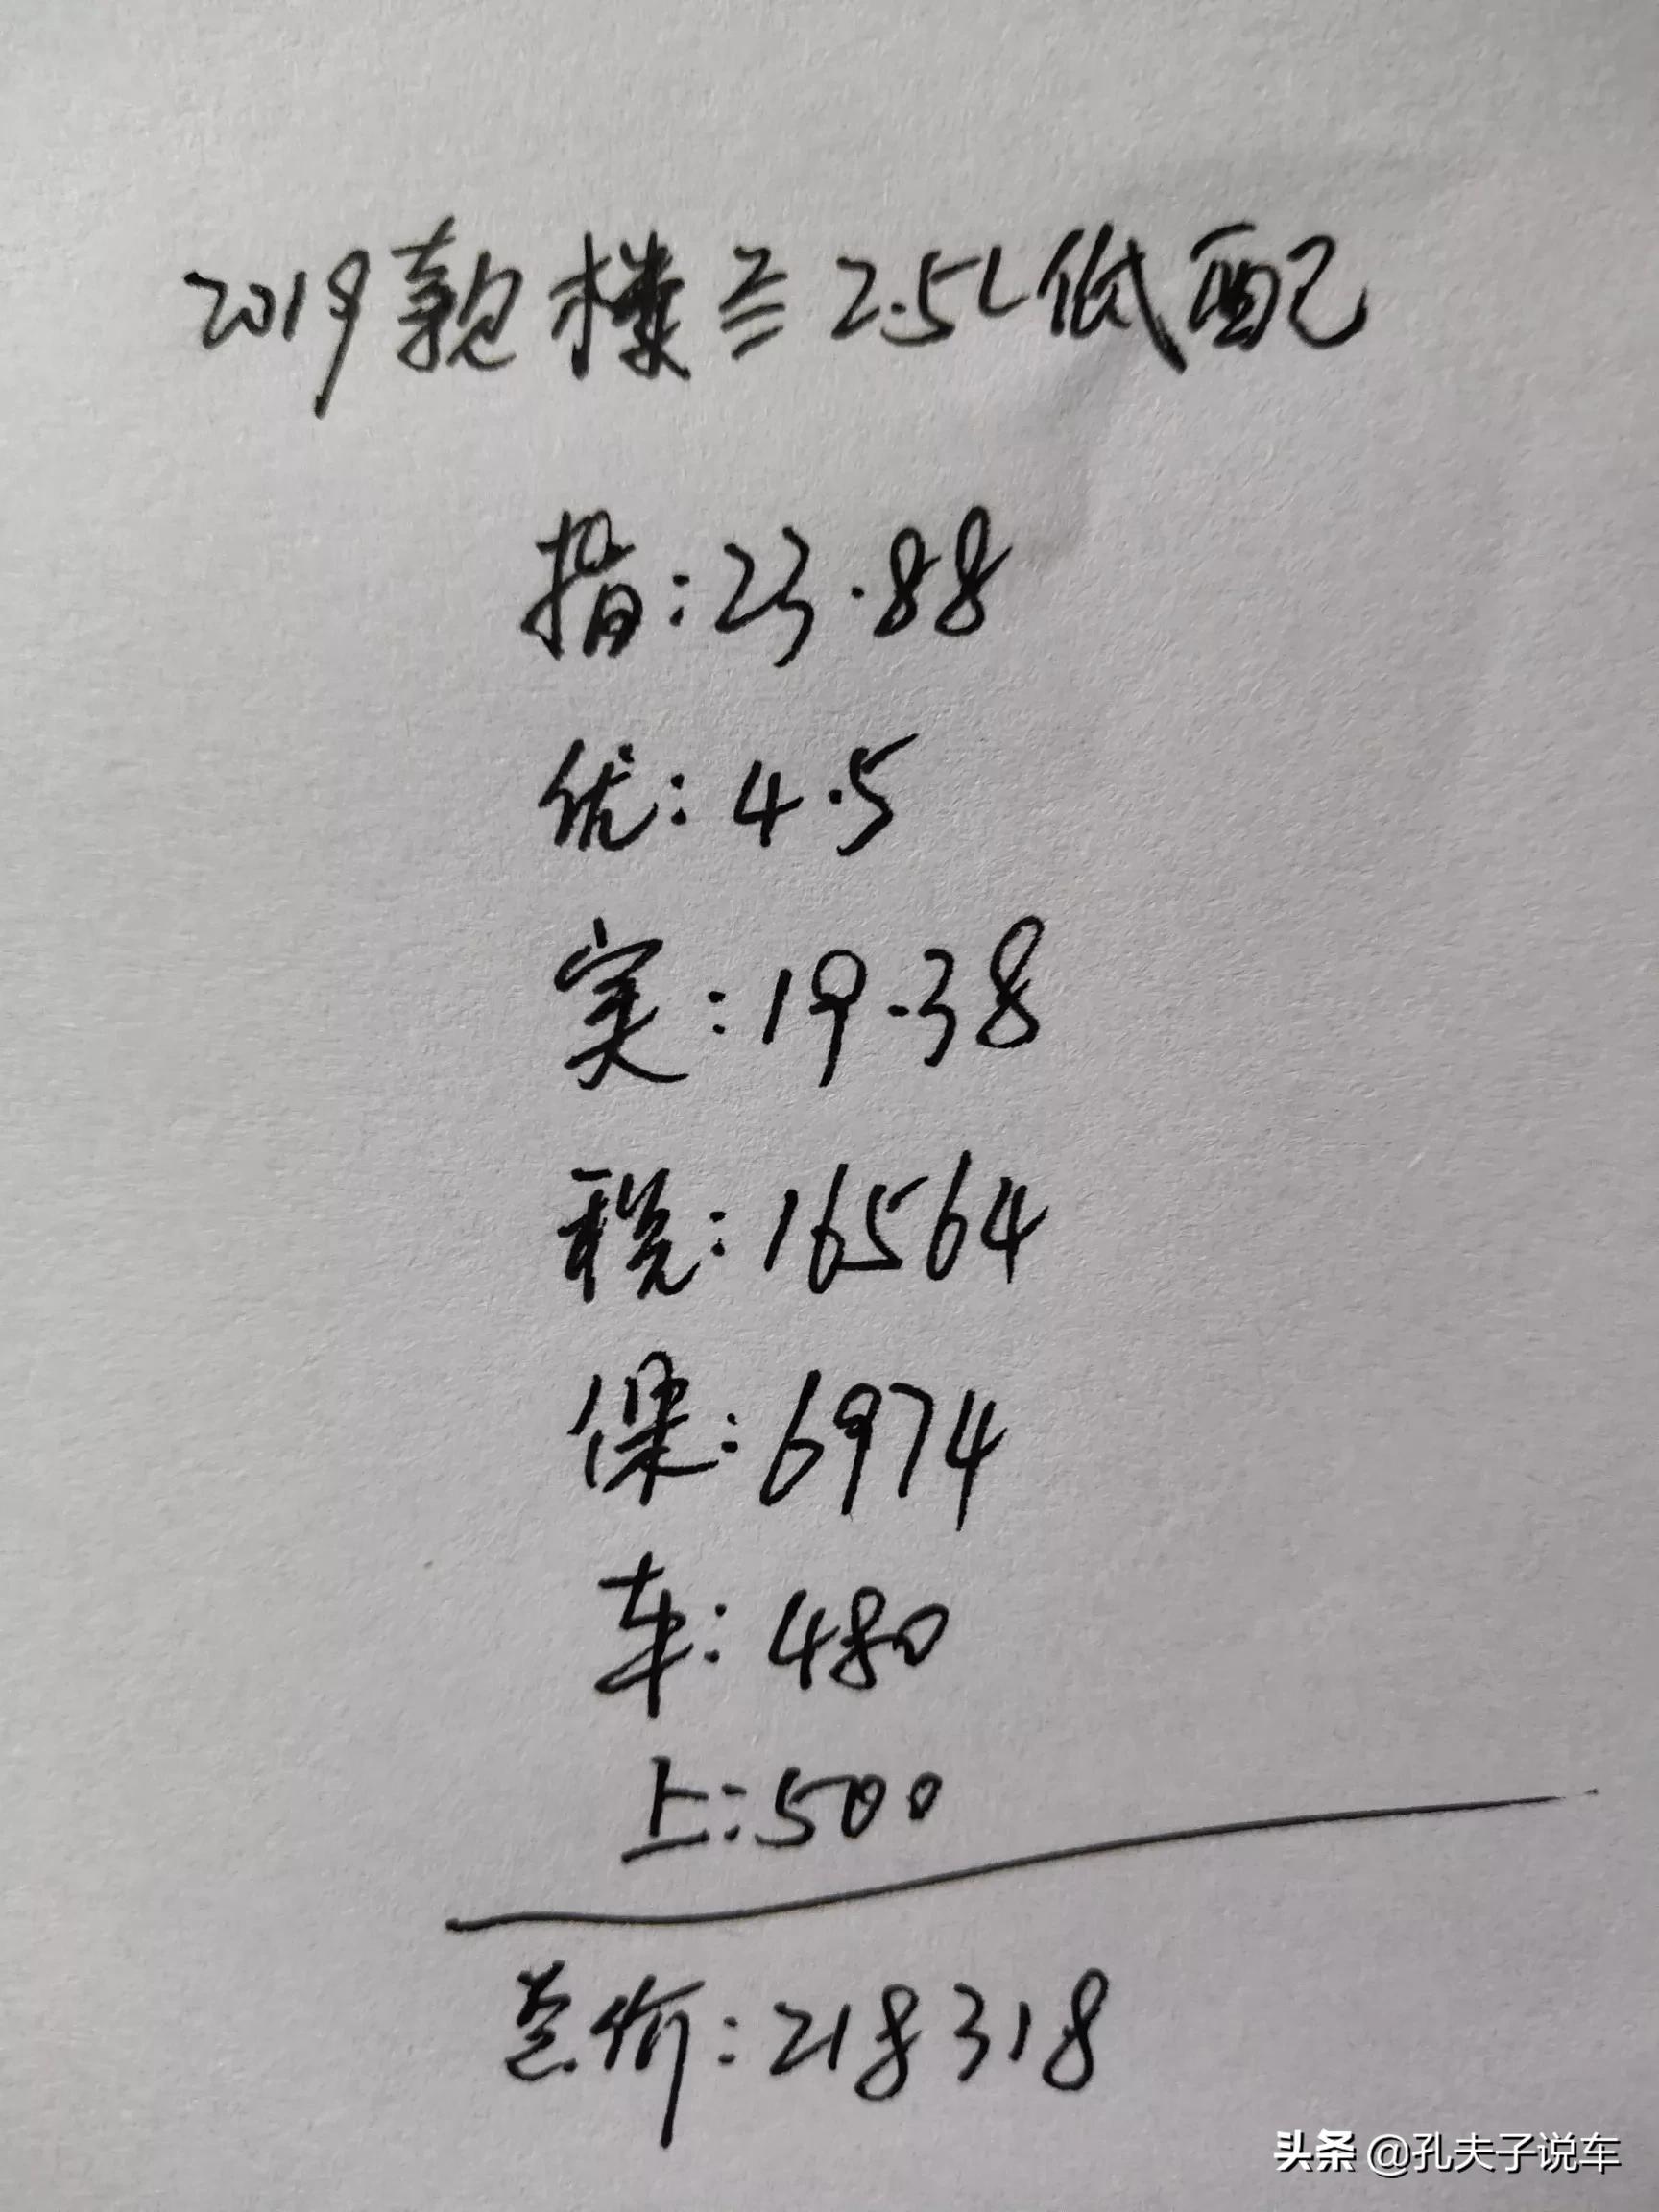 2019款楼兰2.5L低配
指:23.88
优:4.5
实:19.38
税:16564
保:6974
车:480
上:500
总价:218318
头条 @孔夫子说车